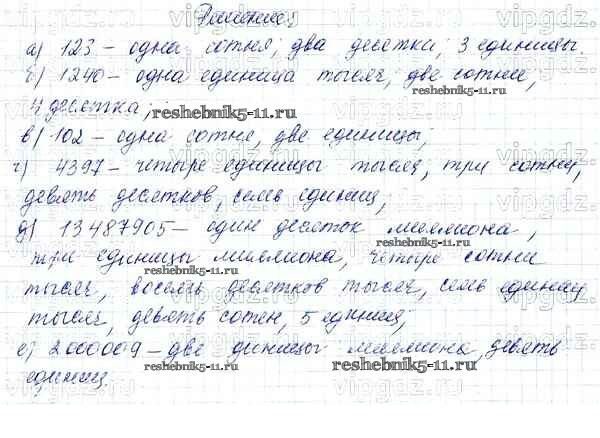 Решение:
а) 123 – одна сотня, два десятки, 3 единицы.
б) 1240 – одна единица тысяч, две сотни,
4 десятка;
в) 102 – одна сотня, две единицы;
г) 4397 – четыре единицы тысяч, три сотни,
девять десятков, семь единиц;
д) 13487905 – один десяток миллиона,
три единицы миллиона, четыре сотни
тысяч, восемь десятков тысяч, семь единиц
тысяч, девять сотен, 5 единиц;
е) 2000009 – две диницы миллиона, девять
единиц.
vipgdz.ru
reshebnik5-11.ru